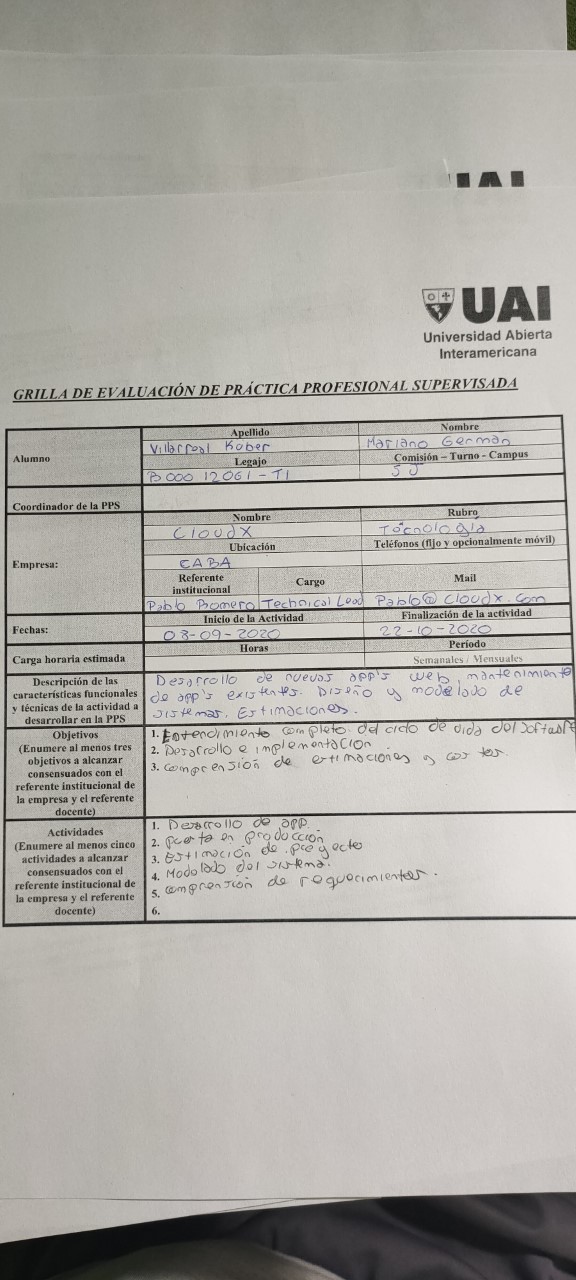 UAI
UAI
Universidad Abierta
Interamericana
GRILLA DE EVALUACIÓN DE PRÁCTICA PROFESIONAL SUPERVISADA
Alumno
Apellido
Nombre
Villarreal Kober
Mariano Germán
Legajo
Comisión – Turno - Campus
B000 12061-T1
5 J
Coordinador de la PPS
Empresa:
Nombre
Rubro
CloudX
Tecnología
Ubicación
Teléfonos (fijo y opcionalmente móvil)
CABA
Referente institucional
Cargo
Mail
Pablo Romero
Technical Lead
Pablo@Cloudx.com
Fechas:
Inicio de la Actividad
Finalización de la actividad
03-09-2020
22-10-2020
Carga horaria estimada
Horas
Período
Semanales / Mensuales
Descripción de las
características funcionales
y técnicas de la actividad a
desarrollar en la PPS
Desarrollo de nuevas app's web, mantenimiento
de app's existentes. Diseño y modelado de
sistemas. Estimaciones.
Objetivos
(Enumere al menos tres
objetivos a alcanzar
consensuados con el
referente institucional de
la empresa y el referente
docente)
1. Entendimiento completo del ciclo de vida del software
2. Desarrollo e implementación
3. comprensión de estimaciones y costos.
Actividades
(Enumere al menos cinco
actividades a alcanzar
consensuados con el
referente institucional de
la empresa y el referente
docente)
1. Desarrollo de app.
2. puesta en producción
3. Estimación de proyecto
4. Modelado del sistema.
5. comprensión de requerimientos.
6.